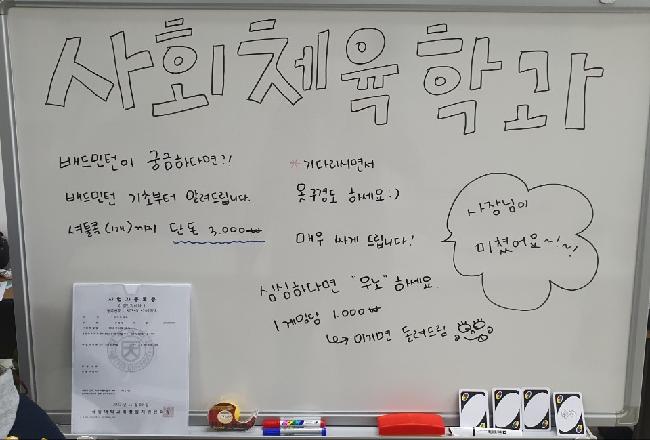 사회체육학과
배드민턴이 궁금하다면?!
배드민턴 기초부터 알려드립니다.
셔틀콕(1개)까지 단돈 3.000₩
*기다리시면서
옷구경도 하세요:)
매우 싸게 드립니다!
사장님이
미쳤어요~!~!
심심하다면 "우노" 하세요.
1게임당 1.000₩
↳ 이기면 돌려드림
사업자등록증